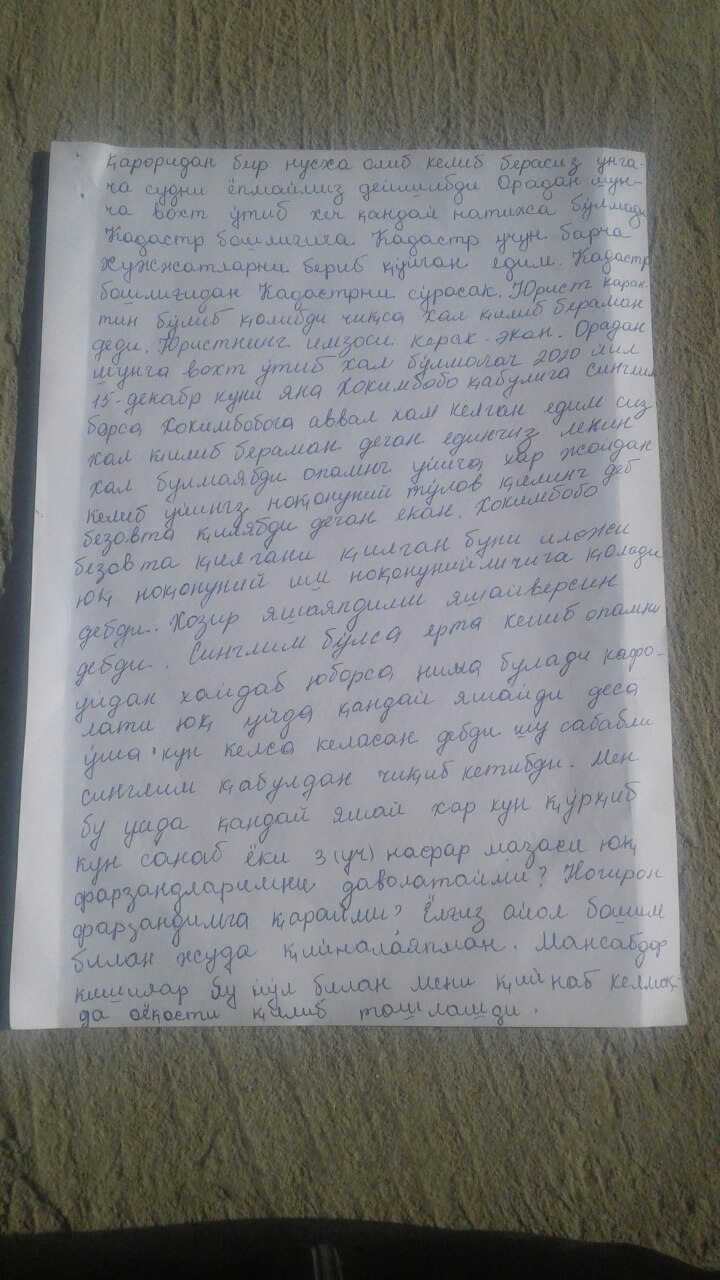 қароридан бир нусха олиб келиб берасиз унга-
ча судни ёпмаймиз дейишибди. Орадан шун-
ча вохт ўтиб хеч қандай натижа бўлмади
Кадастр бошлиғига Кадастр учун барча
хужжатларни бериб қўйган едим. Кадастр
бошлиғидан Кадастрни сўрасак. Юрист каран-
тин бўлиб қолибди чиқса хал қилиб бераман
деди. Юристнинг имзоси керак экан. Орадан
шунга вохт ўтиб хал бўлмагач 2020 йил
15-декабр куни яна Хокимбобо қабулига синглим
барса Хокимбобога аввал хам келган едим сиз
хал қилиб бераман деган едингиз лекин
хал булмаябди опамнг уйига хар жойдан
келиб уйингз ноқонуний тўлов қилинг деб
безовта қиляябди деган екан. Хокимбобо
безовта қилгани қилган буни иложи
юқ ноқонуний иш ноқонунийлигича қолади
дебди. Хозир яшаяпдими яшайверсин
дебди. Синглим бўлса ерта келиб опамни
уйдан хайдаб юборса нима булади кафо-
лати юқ уйда қандай яшайди деса
ўша кун келса келасан дебди шу сабабли
синглим қабулдан чиқиб кетибди. Мен
бу уйда қандай яшай хар кун қўрқиб
кун санаб ёки 3 (уч) нафар мазаси юқ
фарзандларимни даволатайми? Ногирон
фарзандимга қарайми? Ёлғиз аёл бошим
билан жуда қийналаяпман. Мансабдор
кишилар бу йўл билан мени қийнаб келмоқ-
да оёқости қилиб ташлашди.